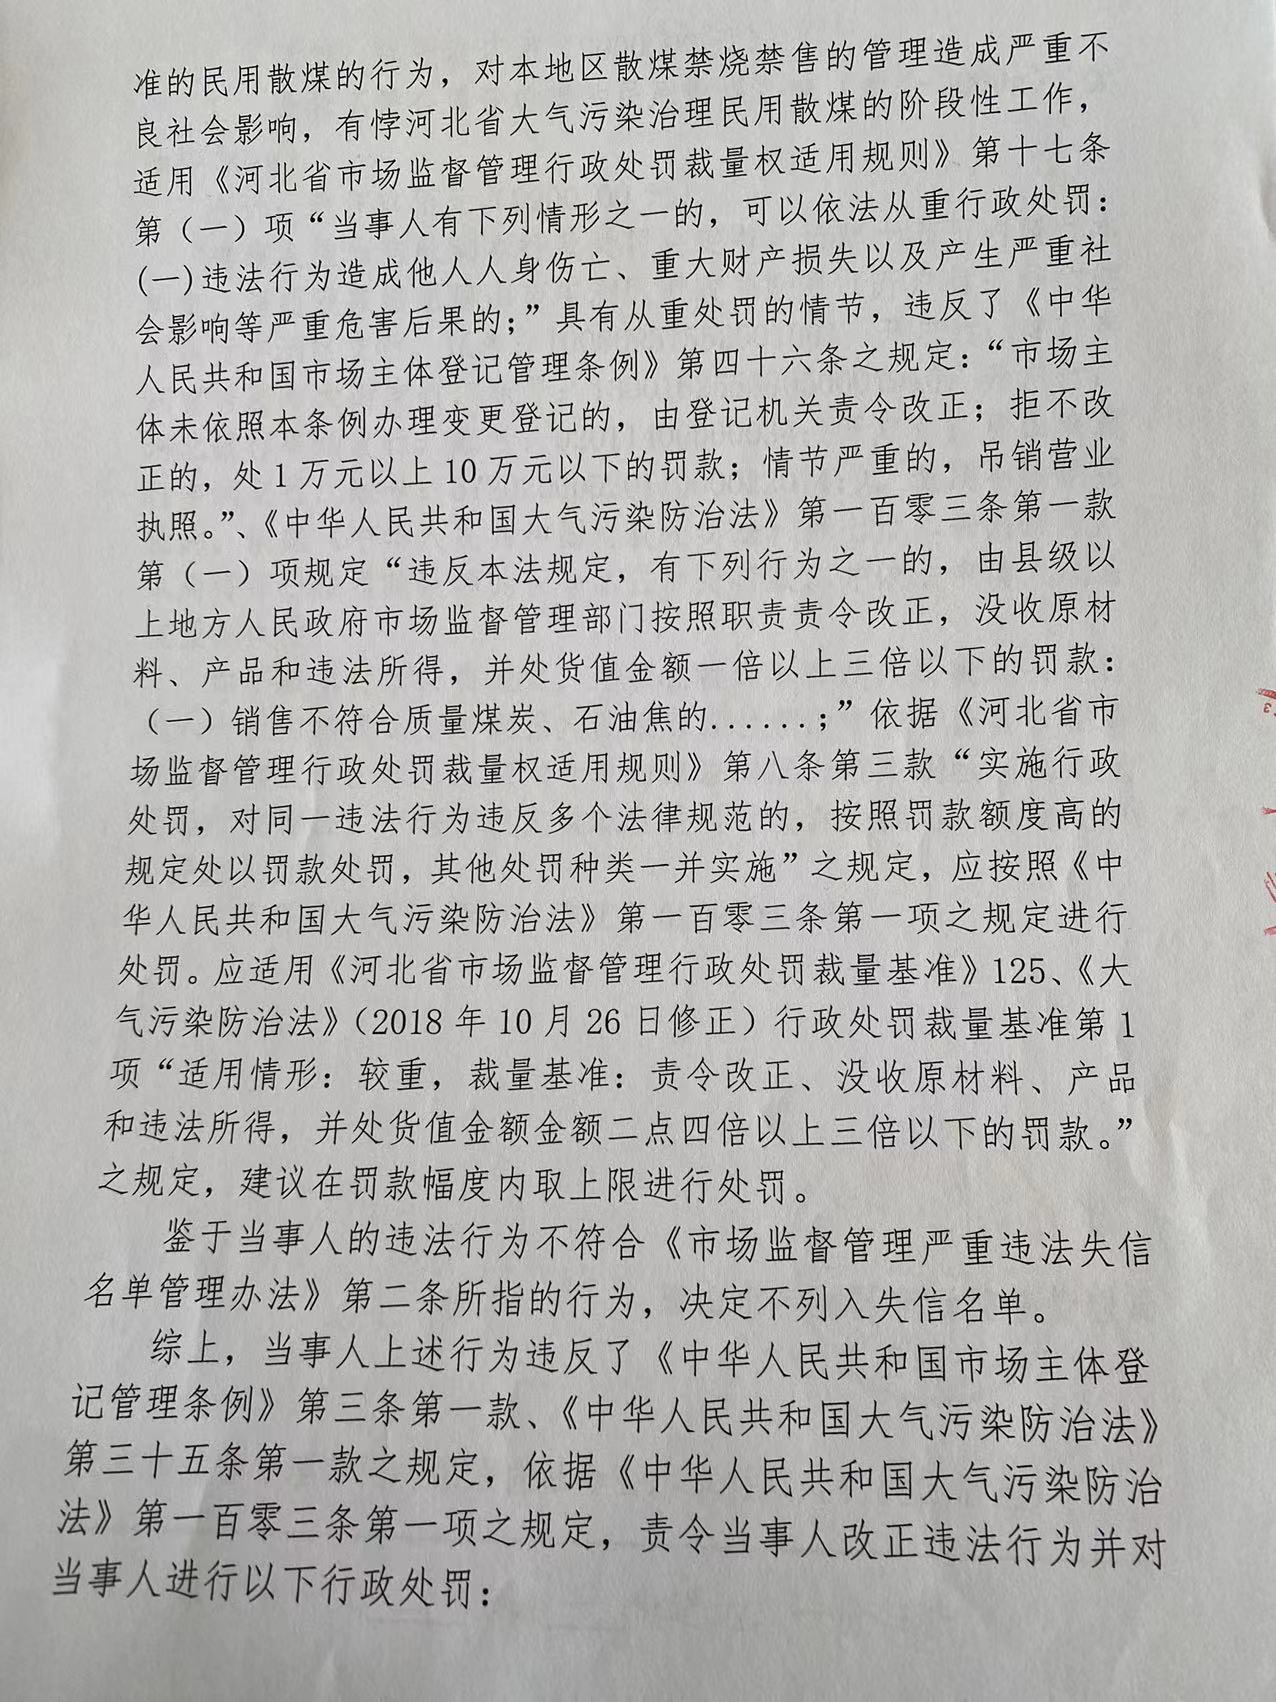 准的民用散煤的行为，对本地区散煤禁烧禁售的管理造成严重不
良社会影响，有悖河北省大气污染治理民用散煤的阶段性工作，
适用《河北省市场监督管理行政处罚裁量权适用规则》第十七条
第（一）项“当事人有下列情形之一的，可以依法从重行政处罚：
(一)违法行为造成他人人身伤亡、重大财产损失以及产生严重社
会影响等严重危害后果的；”具有从重处罚的情节，违反了《中华
人民共和国市场主体登记管理条例》第四十六条之规定：“市场主
体未依照本条例办理变更登记的，由登记机关责令改正；拒不改
正的，处1万元以上10万元以下的罚款；情节严重的，吊销营业
执照。”、《中华人民共和国大气污染防治法》第一百零三条第一款
第（一）项规定“违反本法规定，有下列行为之一的，由县级以
上地方人民政府市场监督管理部门按照职责责令改正，没收原材
料、产品和违法所得，并处货值金额一倍以上三倍以下的罚款：
（一）销售不符合质量煤炭、石油焦的......；”依据《河北省市
场监督管理行政处罚裁量权适用规则》第八条第三款“实施行政
处罚，对同一违法行为违反多个法律规范的，按照罚款额度高的
规定处以罚款处罚，其他处罚种类一并实施”之规定，应按照《中
华人民共和国大气污染防治法》第一百零三条第一项之规定进行
处罚。应适用《河北省市场监督管理行政处罚裁量基准》125、《大
气污染防治法》（2018年10月26日修正）行政处罚裁量基准第1
项“适用情形：较重，裁量基准：责令改正、没收原材料、产品
和违法所得，并处货值金额金额二点四倍以上三倍以下的罚款。”
之规定，建议在罚款幅度内取上限进行处罚。
鉴于当事人的违法行为不符合《市场监督管理严重违法失信
名单管理办法》第二条所指的行为，决定不列入失信名单。
综上，当事人上述行为违反了《中华人民共和国市场主体登
记管理条例》第三条第一款、《中华人民共和国大气污染防治法》
第三十五条第一款之规定，依据《中华人民共和国大气污染防治
法》第一百零三条第一项之规定，责令当事人改正违法行为并对
当事人进行以下行政处罚：